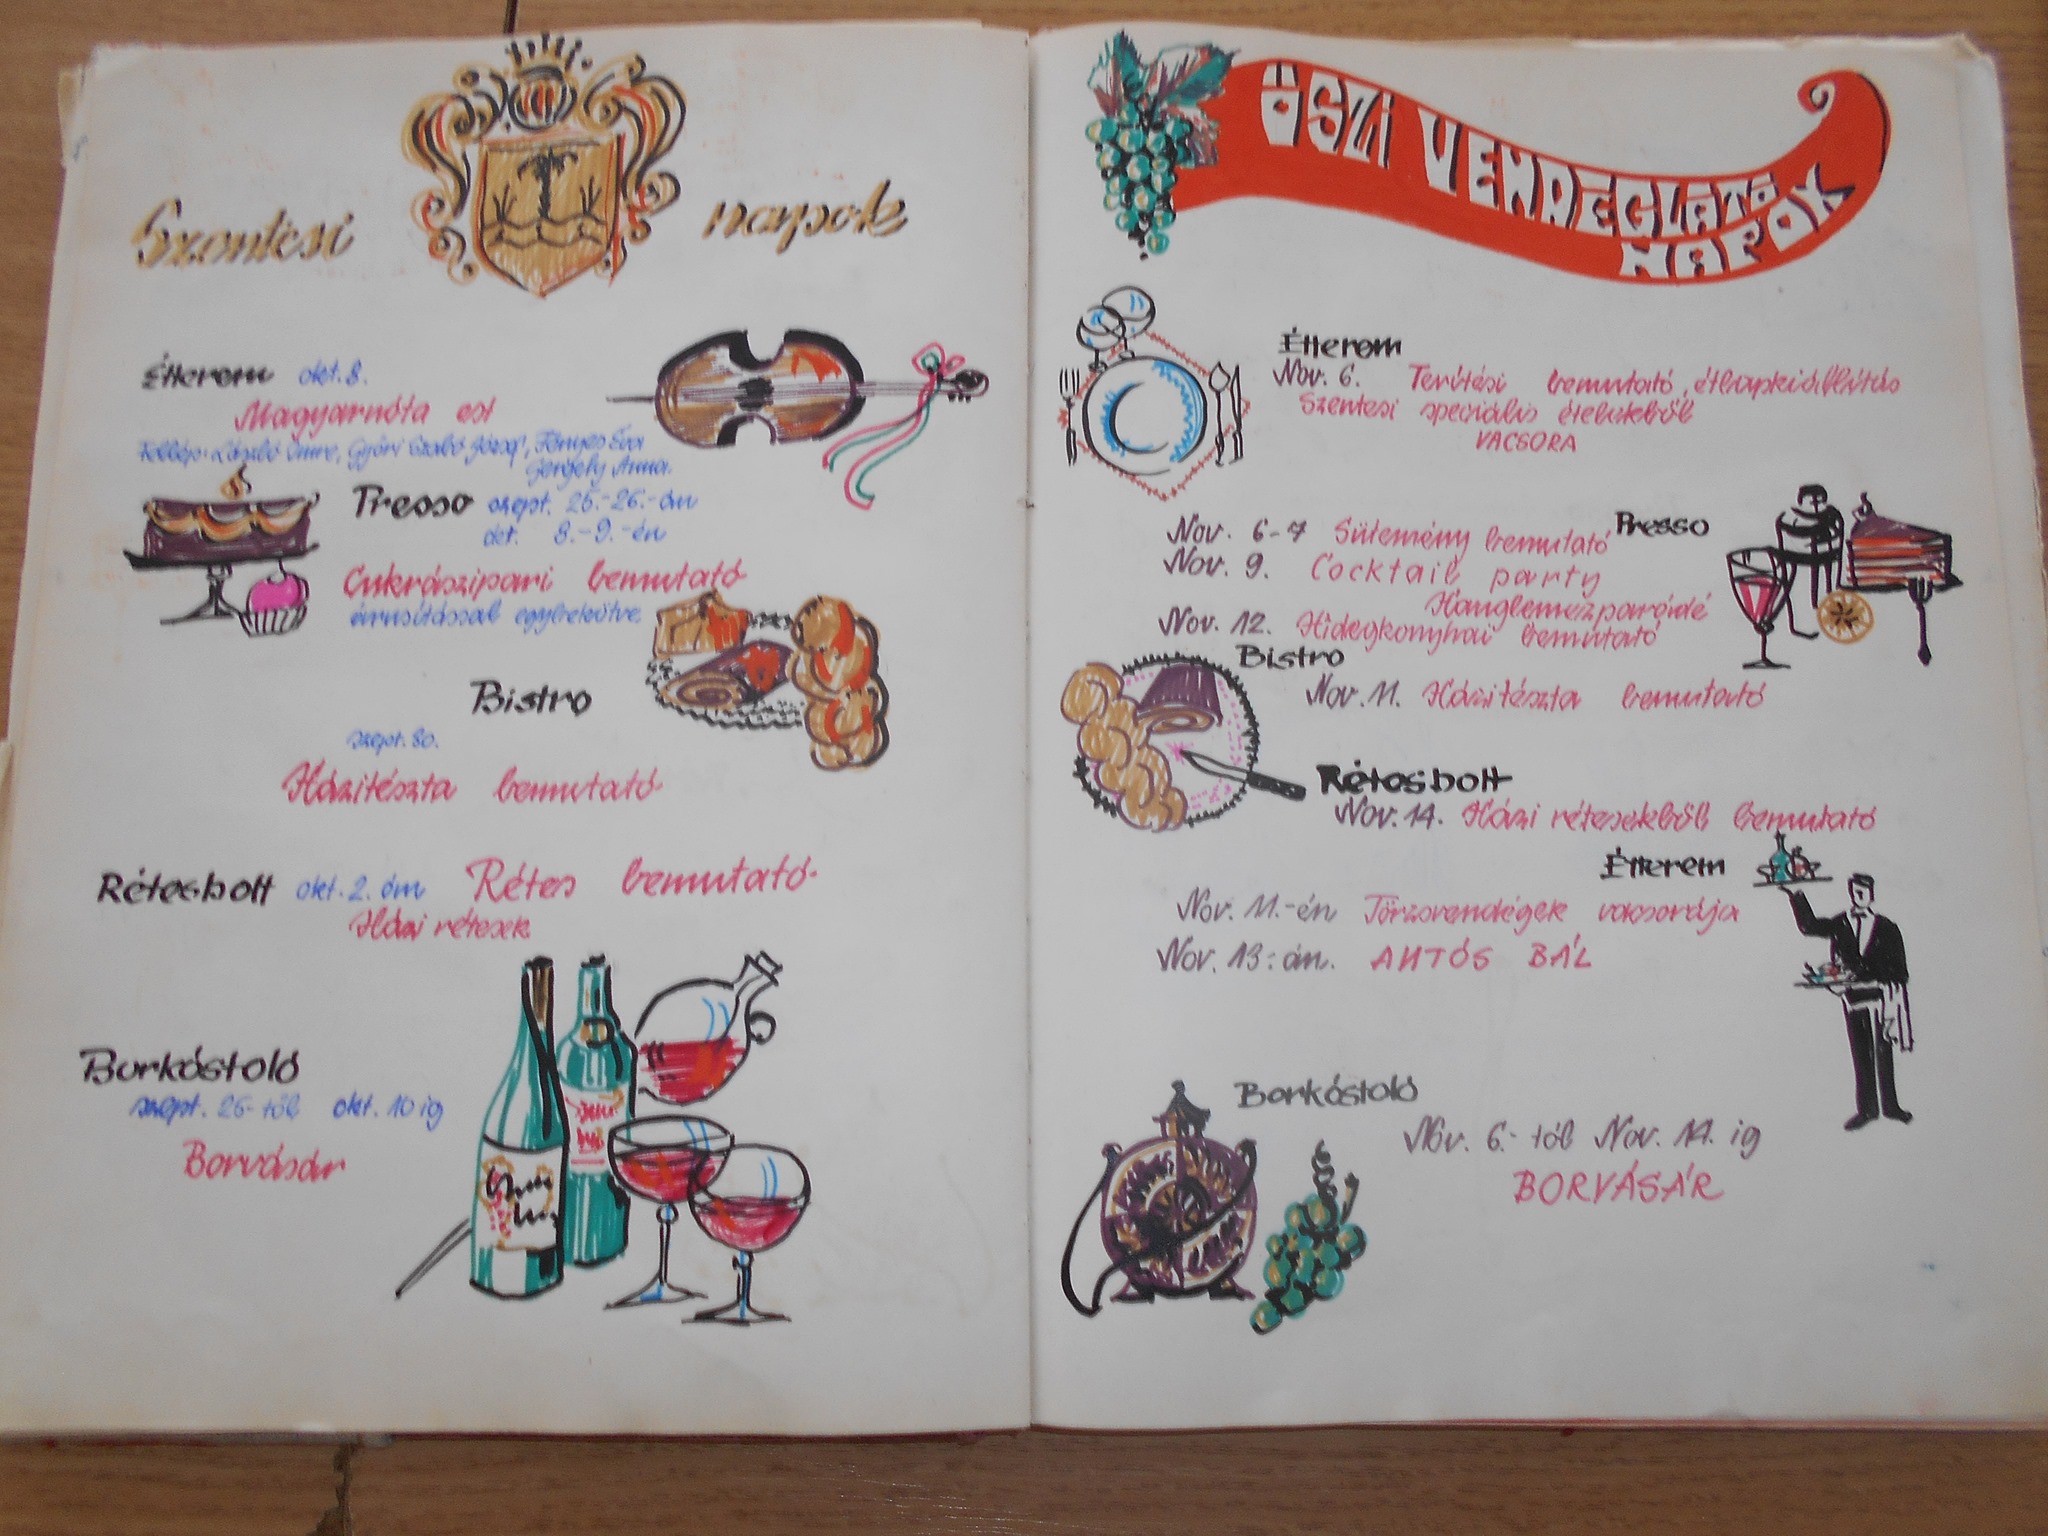 Szentesi napok
Étterem okt. 8.
Magyarnóta est
Fellép: László Imre, Győri Szabó József, Fényes Éva
Gergely Anna.
Presso szept. 25.-26.-án
okt. 8.-9.-én
Cukrászipari bemutató
árusítással egybekötve.
Bistro
szept. 30.
Házitészta bemutató
Rétesbolt okt. 2. án Rétes bemutató
Házi rétesek
Borkóstoló
szept. 26-tól okt. 10 ig
Borvásár
ŐSZI VENDÉGLÁTÓ
NAPOK
Étterem
Nov. 6. Terítési bemutató, étlapkiállítás
Szentesi speciális ételekből
VACSORA
Presso
Nov. 6-7 Sütemény bemutató
Nov. 9. Cocktail party
Hanglemezparádé
Nov. 12. Hidegkonyhai bemutató
Bistro
Nov. 11. Házitészta bemutató
Rétesbolt
Nov. 14. Házi rétesekből bemutató
Étterem
Nov. 11.-én Törzsvendégek vacsorája
Nov. 13.-án. AUTÓS BÁL
Borkóstoló
Nov. 6.-tól Nov. 14. ig
BORVÁSÁR